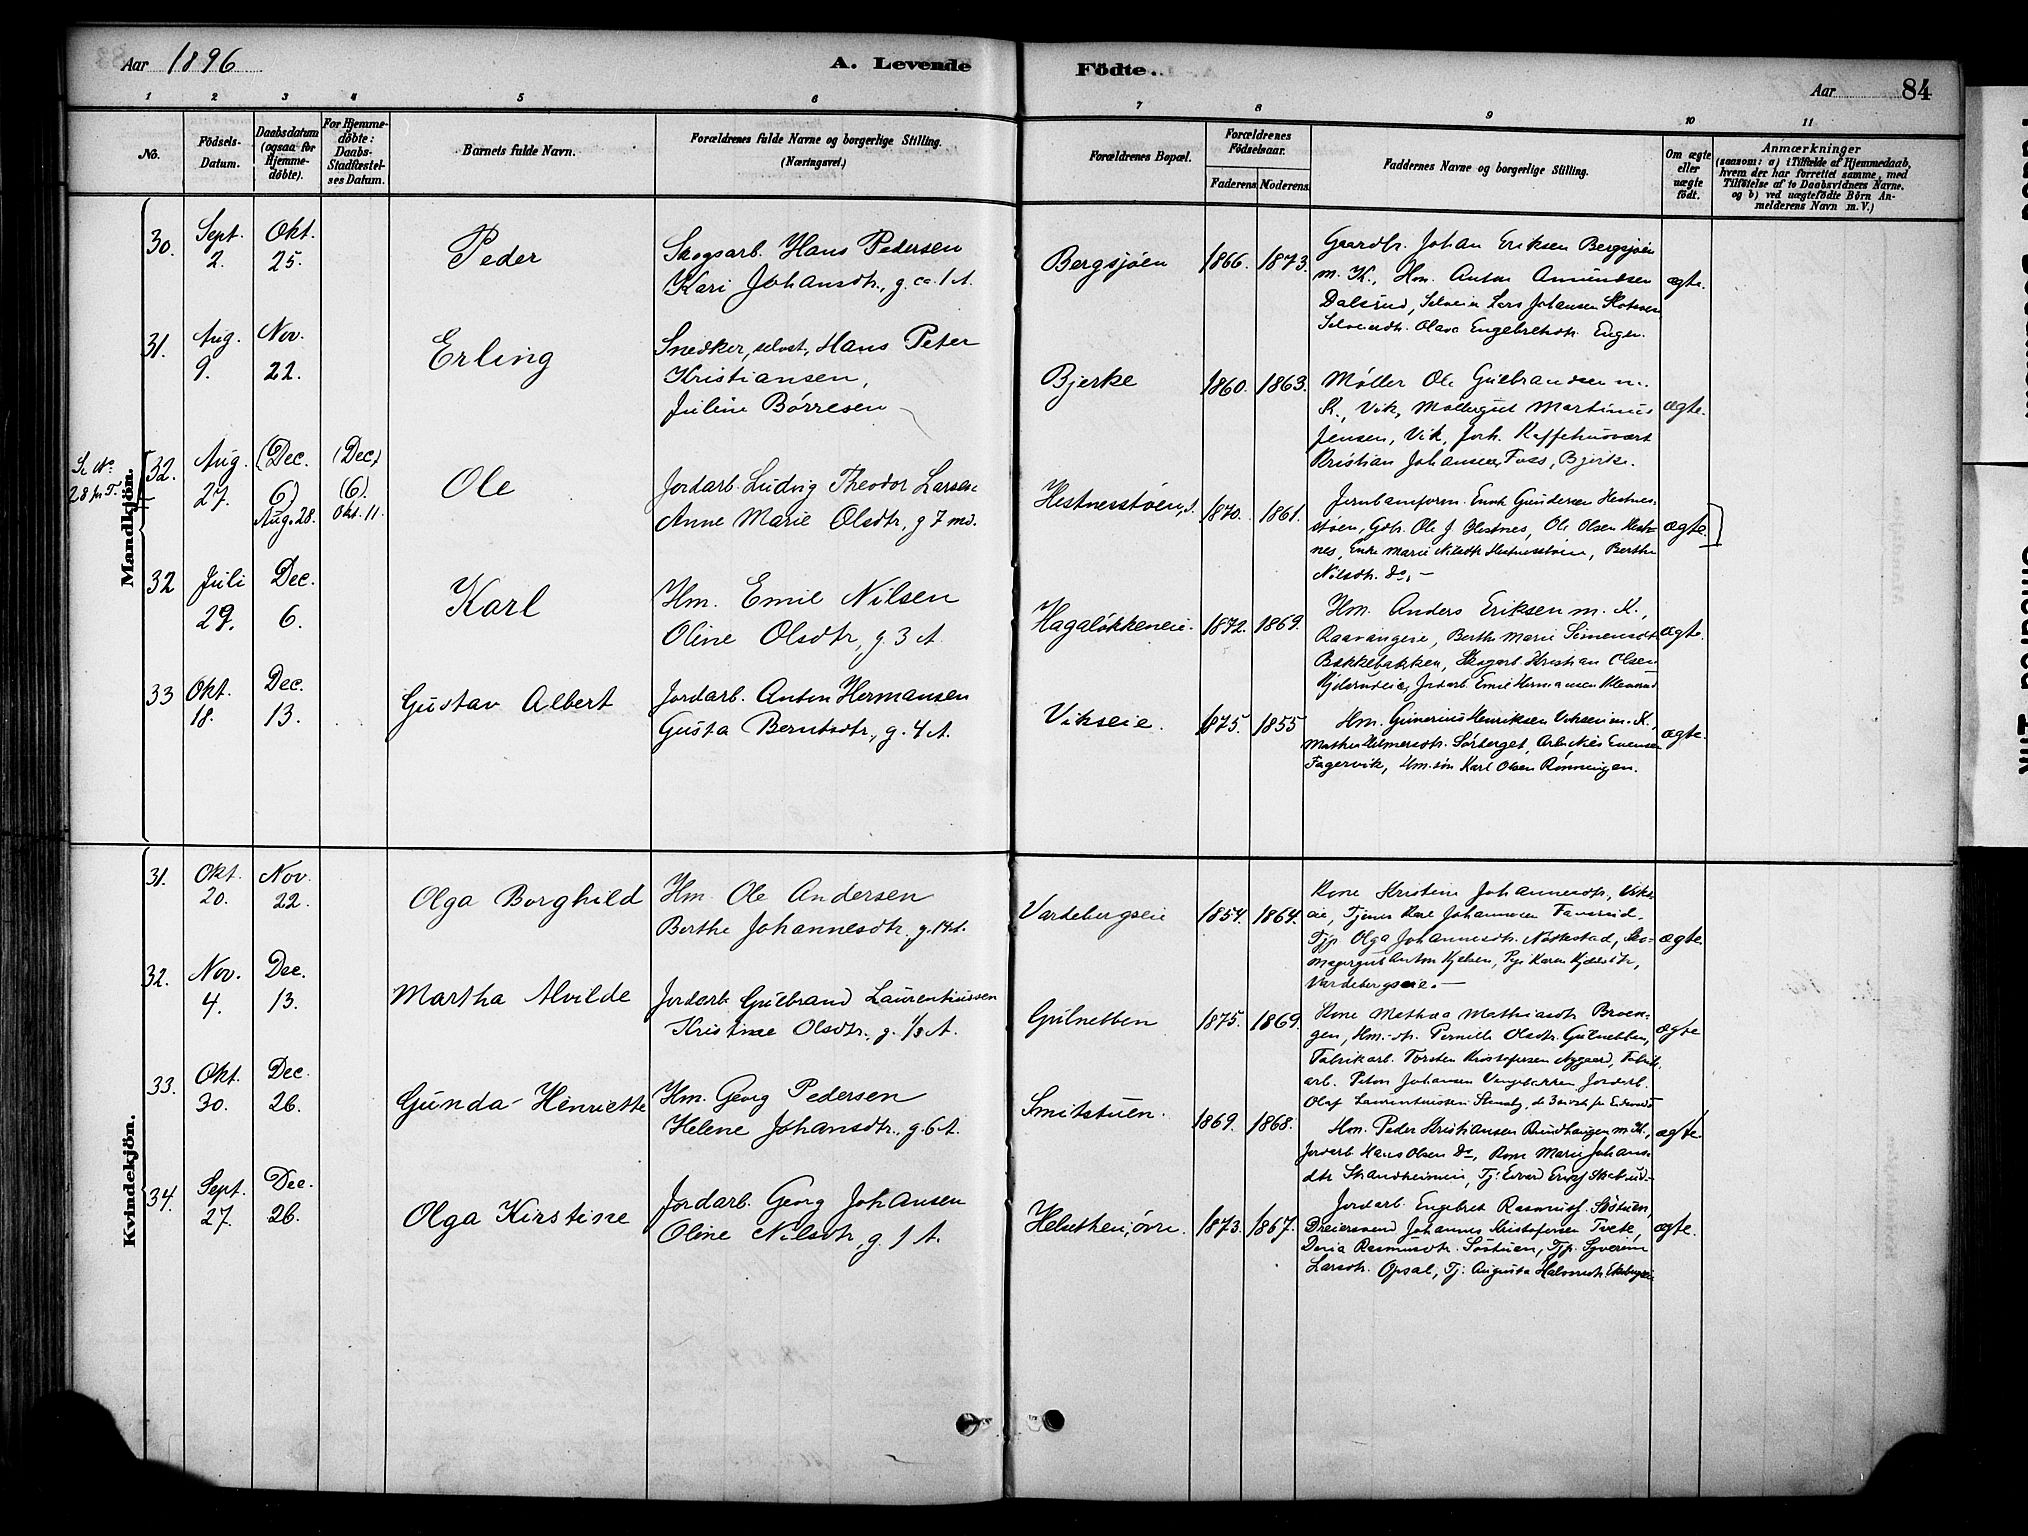 Aar 1896
A. Levende Födte.
Aar 84
1 2 3 4 5 6 7 8 9 10 11
No.
Födsels-Datum.
Daabsdatum (ogsaa for Hjemmedøbte).
For Hjemmedøbte: Daabs-Stadfæstelses Datum.
Barnets fulde Navn.
Forældrenes fulde Navne og borgerlige Stilling. (Næringsvei.)
Forældrenes Bopæl.
Forældrenes Födselsaar.
Faderens. Moderens.
Faddernes Navne og borgerlige Stilling.
Om ægte eller uægte født.
Anmærkninger
(saasom: a) i Tilfælde af Hjemmedaab,
hvem der har forrettet samme, med
Tilføielse af to Daabsvidners Navne.
og b) ved uægtefödte Börn An-
melderens Navn m. V.)
Mandkjön.
30. Sept. 2. Okt. 25. Peder
Skogsarb. Hans Pedersen
Kari Johansdtr., g. ca. 1 A.
Bergsjøen 1866. 1873.
Gaardbr. Johan Eriksen Bergsjøen
m. K., Hm. Anton Amundsen
Dalsrud, Selveier Lars Johansen
Selveierdtr. Olava Engebretsdtr. Engen.
ægte.
31. Aug. 9. Nov. 22. Erling
Snedker, selvst., Hans Peter
Kristiansen,
Juline Børresen
Bjerke 1860. 1863.
Møller Ole Gulbrandsen m.
K., Vik, Møllergut Martinus
Jensen, Vik, Kaffehusvært
Kristian Johansen Foss, Bjerke.
ægte.
Se No. 28
32. Aug. 27. (Dec. 6) Aug. 28. (Dec.) (6). Okt. 11. Ole
Jordarb. Ludvig Theodor Larsen
Anne Marie Olsdtr, g 7 md.
Hestnesstøen, 1870. 1861.
Jernbaneform. Gundersen Hestnes-
støen, Gdbr. Ole J. Hestnes, Ole Olsen Hest-
nes, Enke Marie Nilsdtr Hestnesstøen, Berthe
Nilsdtr. do.
ægte.
32 Juli 29. Dec. 6. Karl
Hm. Emil Nilsen
Oline Olsdtr, g. 3 A.
Hagaløkkeneie. 1872. 1869.
Hm. Anders Eriksen m. K.,
Raavangeie, Berthe Marie Simensdtr
Bakkebakken, Skogarb. Kristian Olsen
Jordarb. Emil Hermansen
ægte.
33 Okt. 18. Dec. 13. Gustav Albert
Jordarb. Anton Hermansen
Gusta Berntsdtr., g. 4 A.
Vikseie. 1875. 1855
Hm. Gunerius Henriksen Vikseie m. K.,
Mathea Hilmersdtr. Sørberget, Arb. Nils Evensen
Fagervik, Hm.søn Karl Olsen Rønningen.
ægte.
Kvindekjön.
31. Okt. 20. Nov. 22. Olga Borghild
Hm. Ole Andersen
Berthe Johannesdtr, g. 14 A.
Vardebergseie 1854. 1864.
Kone Kristine Johannesdtr, Viks-
eie, Tjener Kare Johannesen
Tjp. Olga Johannesdtr. Nøkkestad, Sko-
magergut Anton Kjelsen, Pige Karen
Vardebergseie.
ægte.
32. Nov. 4. Dec. 13. Martha Alvilde
Jordarb. Gulbrand Laurentiussen
Kristine Olsdtr, g. 1/3 A.
Gulnebben 1875. 1869.
Kone Mathea Mathiasdtr Broen-
gen, Hm.-dtr. Pernille Olsdtr. Gulnebben,
Fabrikarb. Torsten Kristofersen Nygaard, Fabrik-
arb. Peter Johansen Jordarb.
Olaf Laurentiussen
ægte
33. Okt. 30. Dec. 26. Gunda Henriette
Hm. Georg Pedersen
Helene Johansdtr., g. 6 A.
Smitstuen. 1869. 1868.
Hm. Peder Kristiansen Rundhaugen m. K.,
Jordarb. Hans Olsen do, Kone Marie Johans-
dtr Strandheimen, Tj. Edvard
ægte.
34. Sept. 27. Dec. 26. Olga Kirstine
Jordarb. Georg Johansen
Oline Nilsdtr, g. 1 A.
Helsethen, øvre. 1873. 1867.
Jordarb. Engebret Rasmus. Søstuen,
Dreiersvend Johannes Kristofersen
Doria Rasmusdtr. Søstuen, Tjp. Syverine
Larsdtr. Opsal, Tj. Augusta Halvorsdtr
ægte.